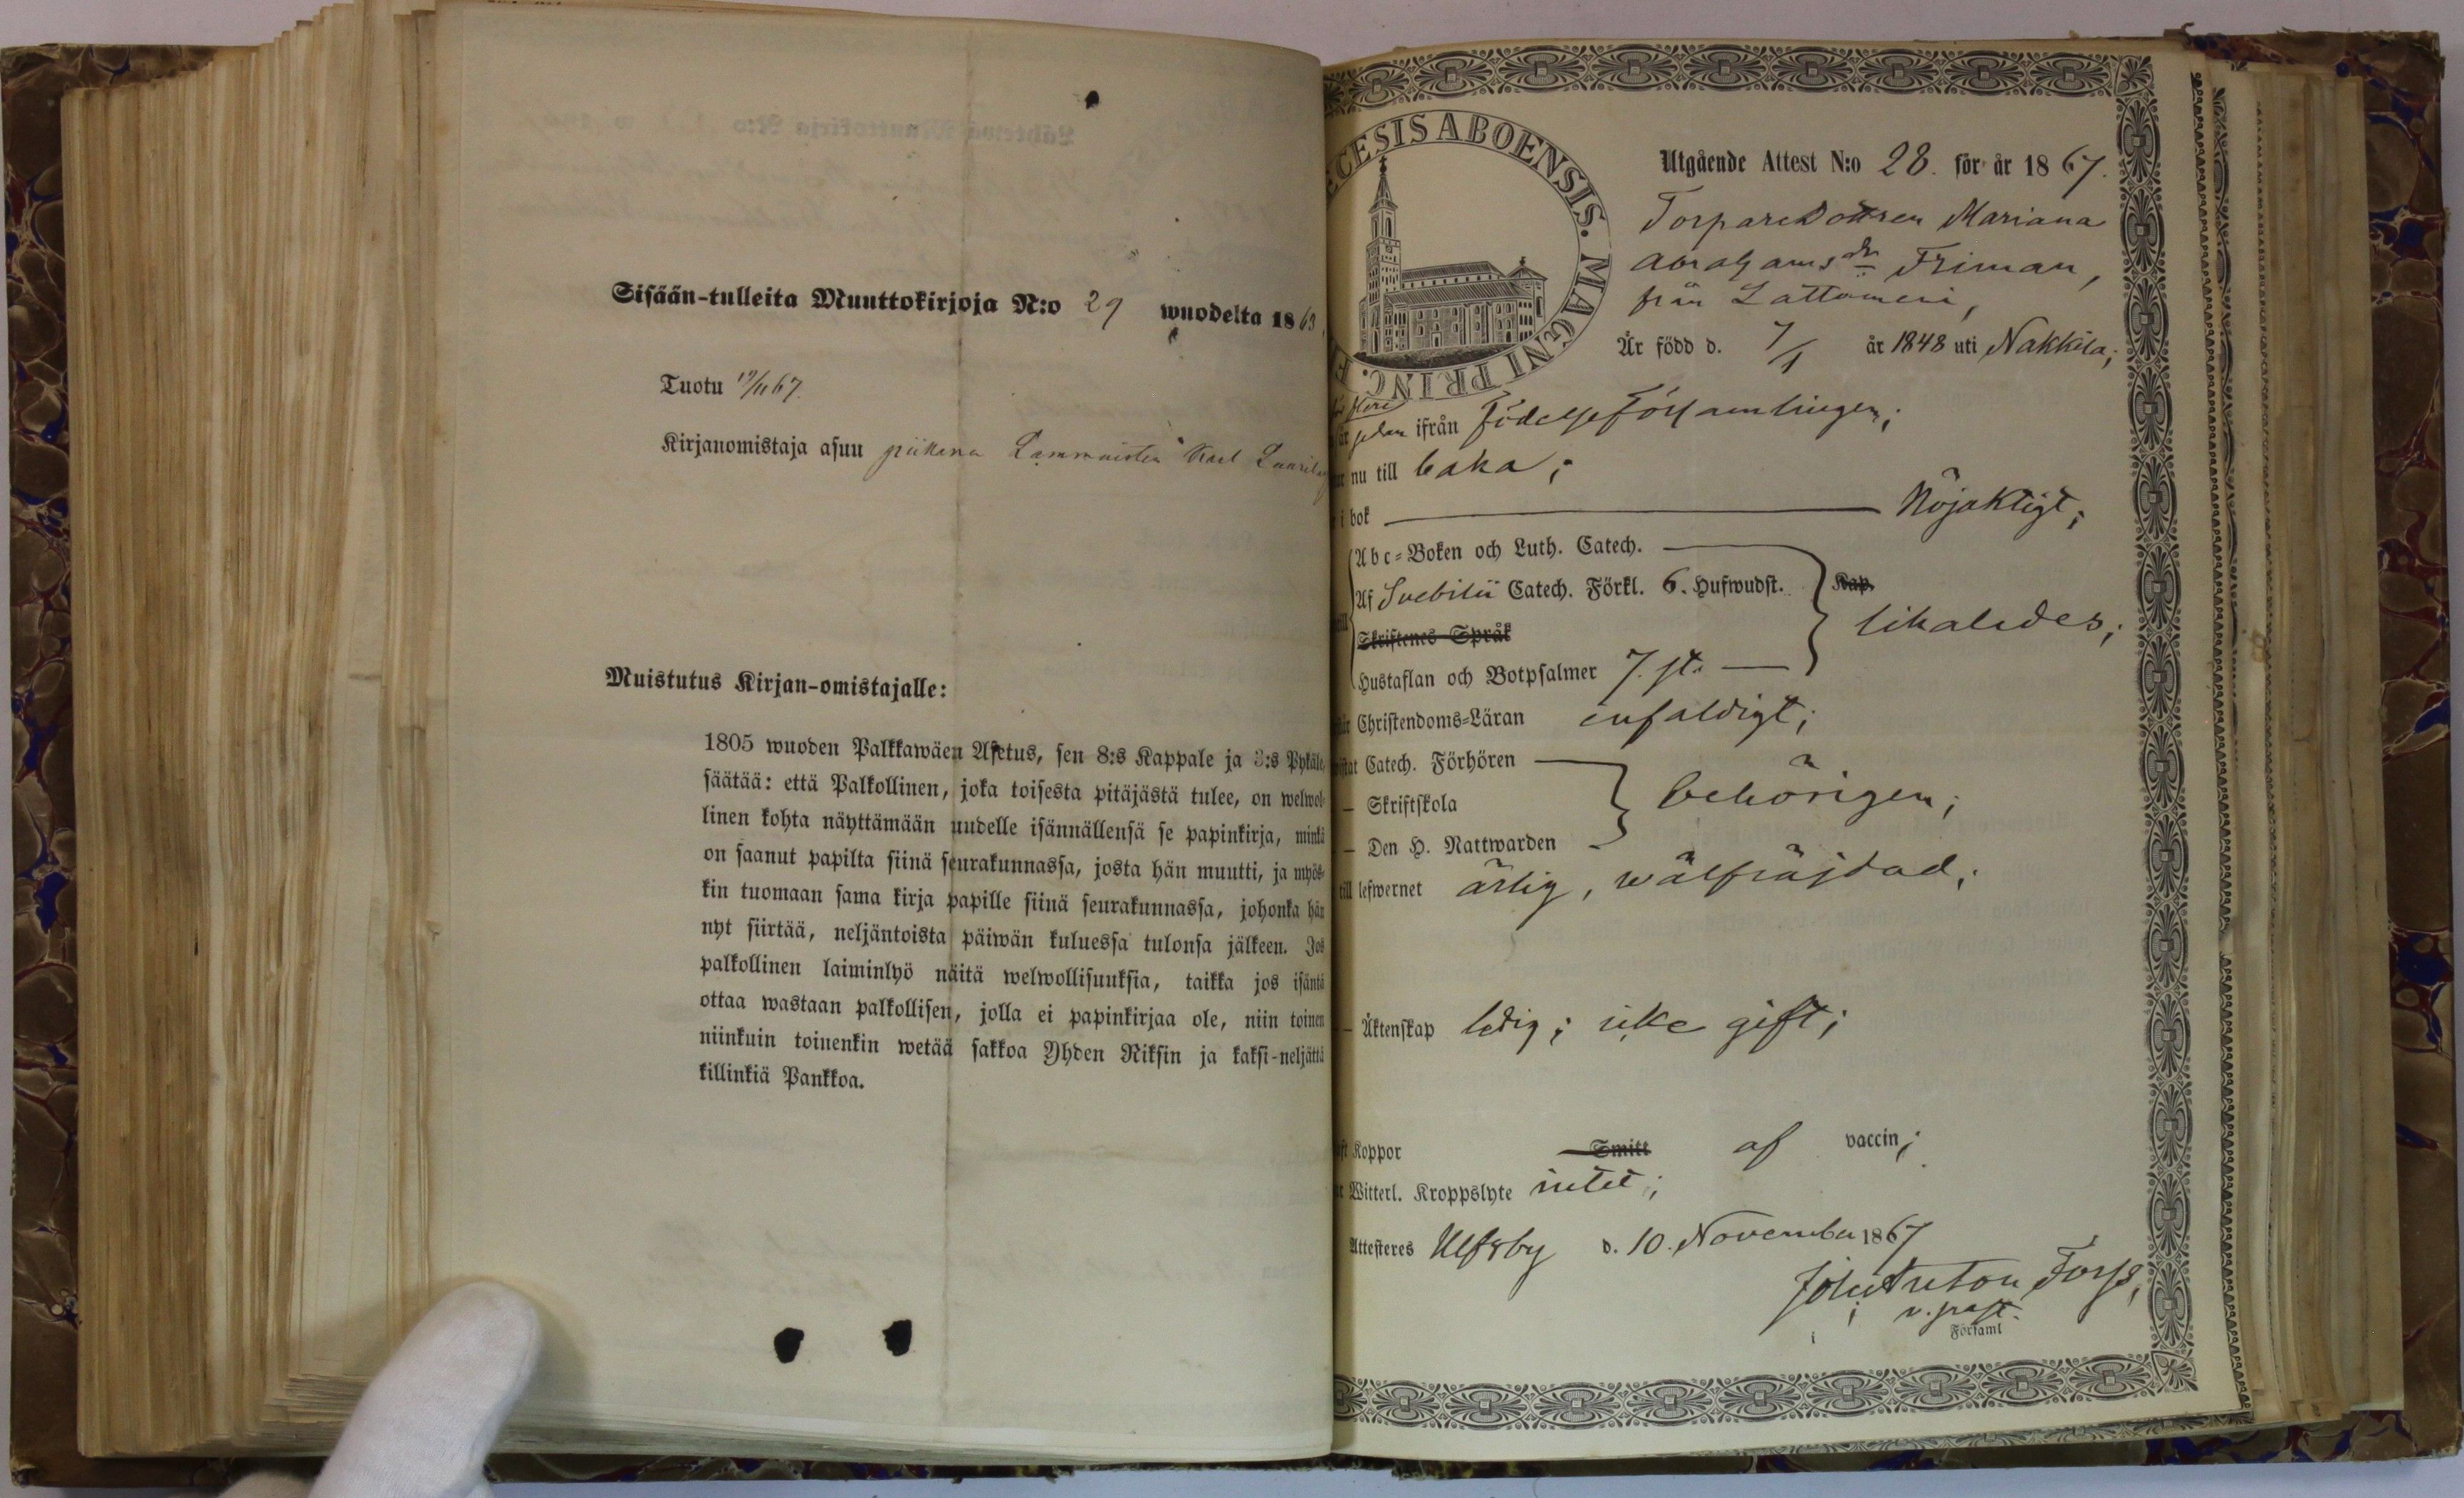 Sisään-tulleita Muuttokirjoja N:o 29 wuodelta 18
Tuotu 19/11 67.
Kirjanomistaja asuu piikana Karl
Muistutus Kirjan-omistajalle:
1805 wuoden Palkkawäen Asetus, sen 8:s Kappale ja 3:s Pykälä,
säätää: että Palkollinen, joka toisesta pitäjästä tulee, on welwol-
linen kohta näyttämään uudelle isännällensä se papinkirja, minkä
on saanut papilta siinä seurakunnassa, josta hän muutti, ja myös-
kin tuomaan sama kirja papille siinä seurakunnassa, johonka hän
nyt siirtää, neljäntoista päiwän kuluessa tulonsa jälkeen. Jos
palkollinen laiminlyö näitä welwollisuuksia, taikka jos isäntä
ottaa wastaan palkollisen, jolla ei papinkirjaa ole, niin toinen
niinkuin toinenkin wetää sakkoa Yhden Riksin ja kaksi-neljättä
killinkiä Pankkoa.
CESIS ABOENSIS. MAGNI PRINC. F
Utgående Attest N:o 28. för år 1867.
Torparedottren Mariana
Abrahamsdr Friman,
från Lattomeri,
Är född d. 7/1 år 1848 uti Nakkila;
ifrån Födelseförsamlingen;
nu till baka;
i bok Nöjaktigt;
Abc-Boken och Luth. Catech.
Af Svebilii Catech. Förkl. 6. Hufwudst. Kap.
likaledes;
Skriftenes Språk
Hustaflan och Botpsalmer 7. st.
Christendoms-Läran enfaldigt;
Catech. Förhören
— Skriftskola behörigen;
— Den H. Nattwarden
till lefwernet ärlig, wälfräjdad;
— Äktenskap ledig; icke gift;
Koppor Smitt af vaccin;
Witterl. Kroppslyte intet;
Attesteres Ulfsby d. 10. November 1867
Joh. Anton Forss,
i v. past.
i Församl